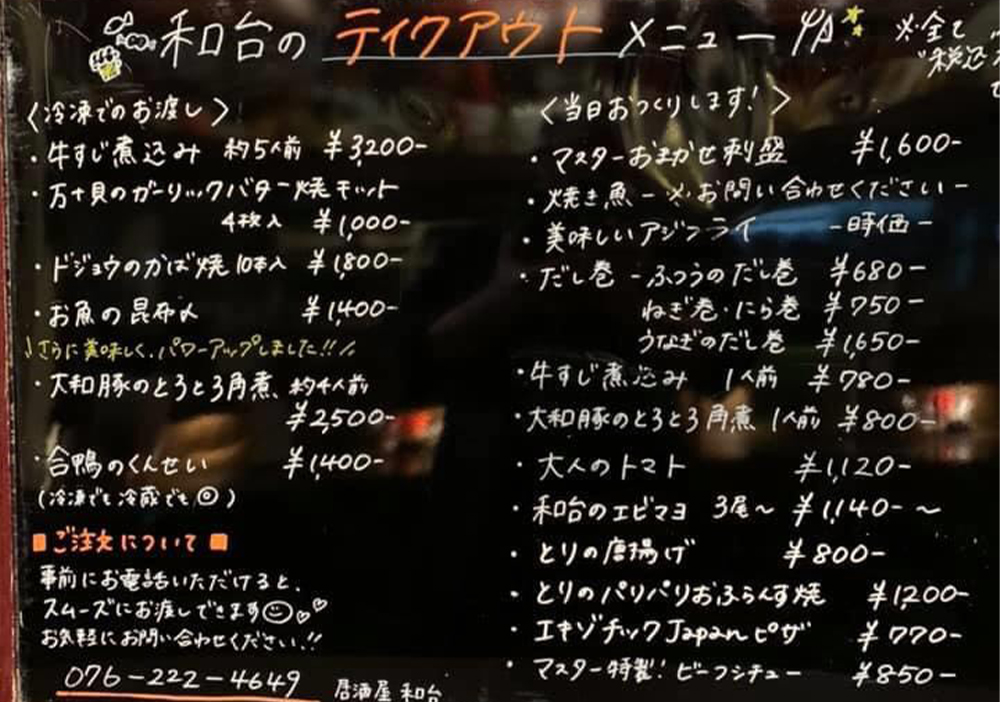 和台の テイクアウト メニュー
※全て
"税込
〈冷凍でのお渡し〉
・牛すじ煮込み 約5人前 ¥3,200-
・万十貝のガーリックバター焼キット
4枚入 ¥1,000-
・ドジョウのかば焼10本入 ¥1,800-
・お魚の昆布〆 ¥1,400-
さらに美味しく、パワーアップしました!!
・大和豚のとろとろ角煮、約4人前
¥2,500-
・合鴨のくんせい ¥1,400-
(冷凍でも冷蔵でも◎)
■ご注文について■
事前にお電話いただけると、
スムーズにお渡しできます☺♡♡
お気軽にお問い合わせください!!
076-222-4649 居酒屋 和台
〈当日おつくりします!〉
・マスターおまかせ刺盛 ¥1,600-
・焼き魚-※お問い合わせください-
・美味しいアジフライ -時価-
・だし巻 -ふつうのだし巻 ¥680-
ねぎ巻・にら巻 ¥750-
うなぎのだし巻 ¥1,650-
・牛すじ煮込み 1人前 ¥780-
・大和豚のとろとろ角煮 1人前 ¥800-
・大人のトマト ¥1,120-
・和台のエビマヨ 3尾～ ¥1,140-～
・とりの唐揚げ ¥800-
・とりのパリパリおふらんす焼 ¥1,200-
・エキゾチックJapanピザ ¥770-
・マスター特製!ビーフシチュー ¥850-